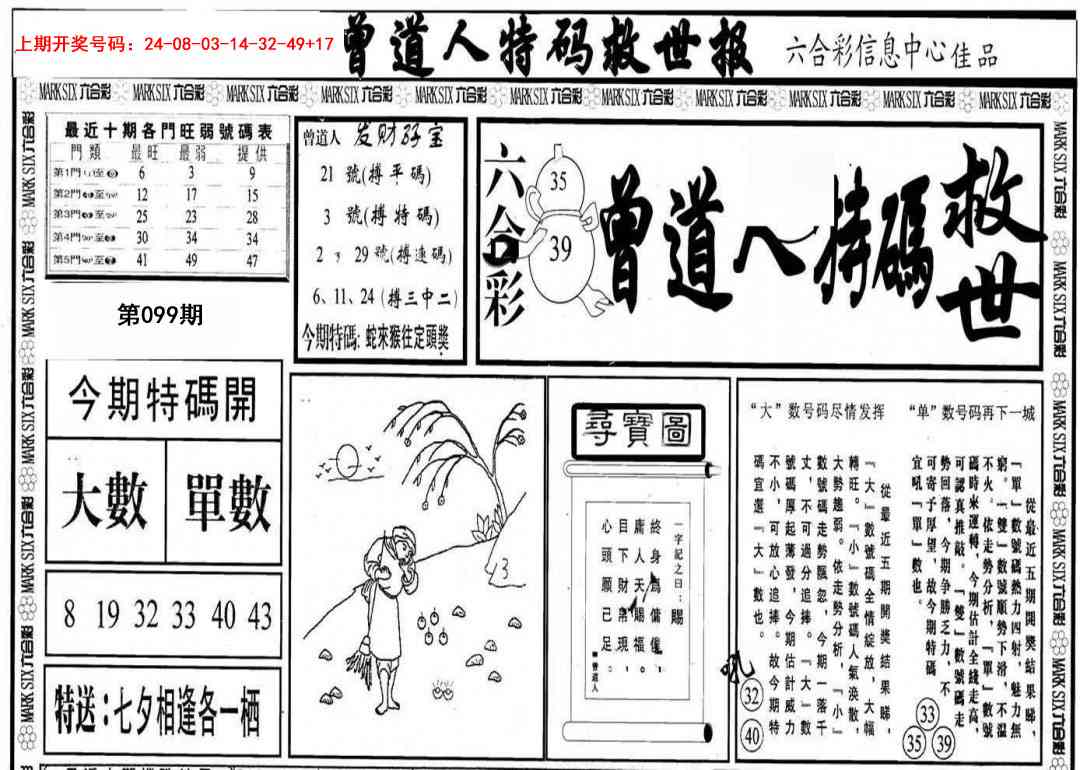 上期开奖号码：24-08-03-14-32-49+17
曾道人特码救世报
六合彩信息中心佳品
MARK SIX 六合彩 MARK SIX 六合彩 MARK SIX 六合彩 MARK SIX 六合彩 MARK SIX 六合彩 MARK SIX 六合彩 MARK SIX 六合彩 MARK SIX 六合彩 MARK SIX 六合彩 MARK SIX 六合彩 MARK SIX 六合彩
最近十期各門旺弱號碼表
門類 最旺 最弱 提供
第1門 6 3 9
第2門 12 17 15
第3門 25 23 28
第4門 30 34 34
第5門 41 49 47
第099期
曾道人 发财孖宝
21 號(搏平碼)
3 號(搏特碼)
2、29號(搏連碼)
6、11、24(搏三中二)
今期特碼:蛇來猴往定頭獎
六合彩
35
39
曾道人特碼救世
今期特碼開
大數 單數
8 19 32 33 40 43
特送：七夕相逢各一栖
3
尋寶圖
一字記之曰：賜
終身爲傭僱，
庸人天賜福。
目下財帛現，
心頭願已足。
■曾道人
“大”数号码尽情发挥
從最近五期開獎結果睇，
『大』數號碼全情綻放，大幅
轉旺。『小』數號碼人氣渙散，
大勢趨弱。依走勢分析，『小』
數號碼走勢飄忽，今期一落千
丈，不可過分追捧。『大』數
號碼厚起薄發，今期估計威力
不小，可放心追捧。故今期特
碼宜選『大』數也。
吼
32
40
“单”数号码再下一城
從最近五期開獎結果睇，
『單』數號碼熱力四射，魅力無
窮。『雙』數號碼順勢下滑，不溫
不火。依走勢分析，『單』數號
碼時來運轉，今期估計全綫走高，
可認真推敲。『雙』數號碼走
勢回落，今期争勝乏力，不
可寄予厚望，故今期特碼
宜吼『單』數也。
33
35
39